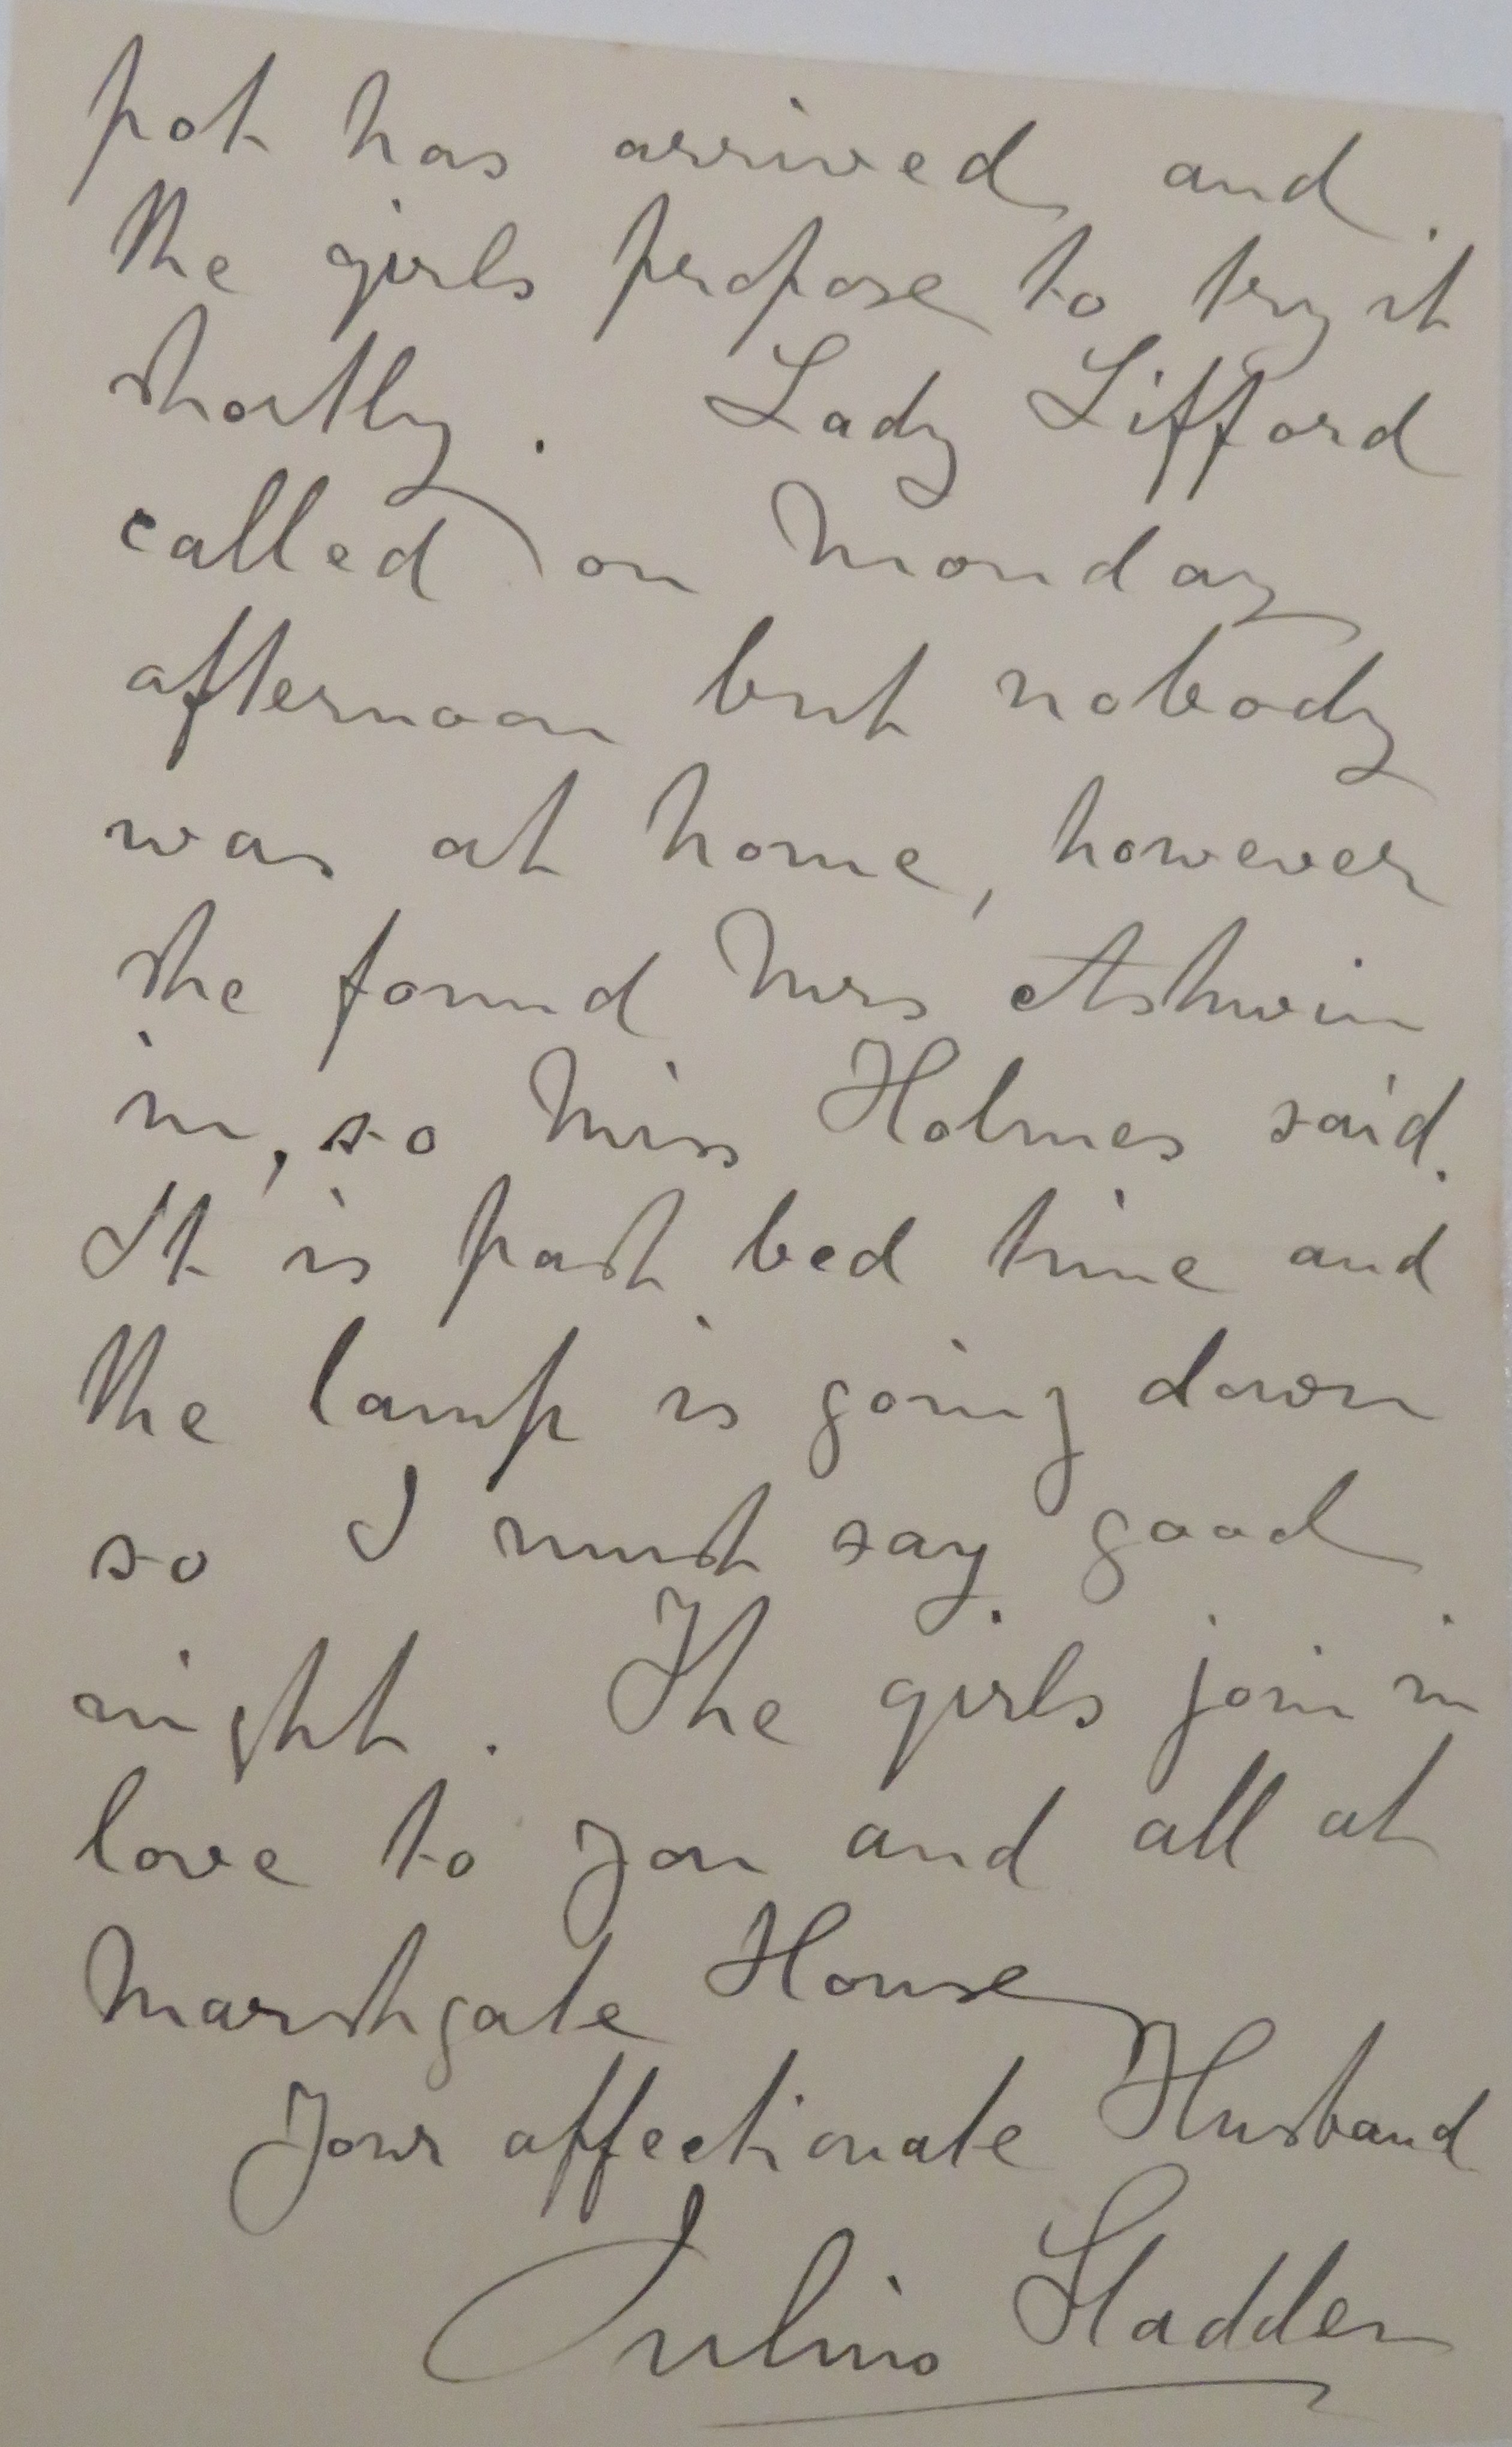 pot has arrived and
the girls propose to try it
shortly. Lady Lifford
called on Monday
afternoon but nobody
was at home, however
she found Mrs Ashwin
in, so Miss Holmes said.
It is past bed time and
the lamp is going down
so I must say good
night. The girls join in
love to you and all at
Marshgate House
Your affectionate Husband
Julius Sladden